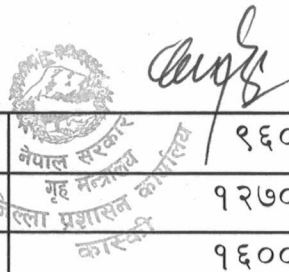 नेपाल सरकार
गृह मन्त्रालय
जिल्ला प्रशासन कार्यालय
कास्की
९६०
१२७०
१६००